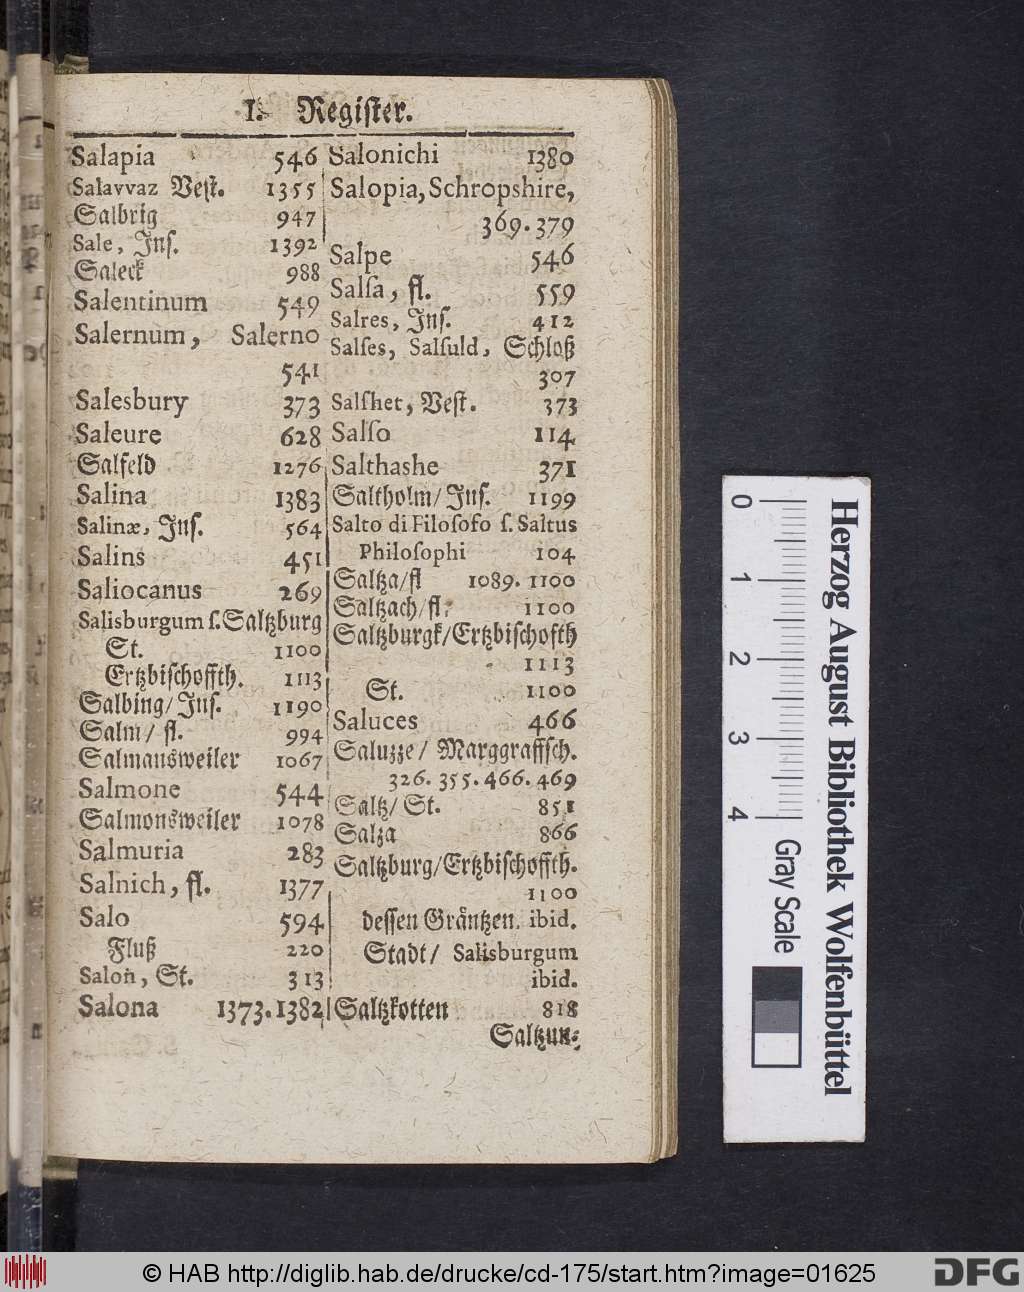 I. Regiſter.
Salapia 546
Salavvaz Veſt. 1355
Salbrig 947
Sale, Inſ. 1392
Saleck 988
Salentinum 549
Salernum, Salerno
541
Salesbury 373
Saleure 628
Salfeld 1276
Salina 1383
Salinæ, Inſ. 564
Salins 451
Saliocanus 269
Salisburgum ſ. Saltzburg
St. 1100
Ertzbiſchoffth. 1113
Salbing/ Inſ. 1190
Salm/ fl. 994
Salmansweiler 1067
Salmone 544
Salmonsweiler 1078
Salmuria 283
Salnich, fl. 1377
Salo 594
Fluß 220
Salon, St. 313
Salona 1373. 1382
Salonichi 1380
Salopia, Schropshire,
369. 379
Salpe 546
Salſa, fl. 559
Salres, Inſ. 412
Salſes, Salſuld, Schloß
307
Salſhet, Veſt. 373
Salſo 114
Salthashe 371
Saltholm/ Inſ. 1199
Salto di Filoſofo ſ. Saltus
Philoſophi 104
Saltza/ fl 1089. 1100
Saltzach/ fl. 1100
Saltzburgk/ Ertzbiſchofth
1113
St. 1100
Saluces 466
Saluzze/ Marggraffſch.
326. 355. 466. 469
Saltz/ St. 851
Salza 866
Saltzburg/ Ertzbiſchoffth.
1100
deſſen Gräntzen. ibid.
Stadt/ Salisburgum
ibid.
Saltzkotten 818
Saltzun⸗
0 1 2 3 4
Gray Scale
Herzog August Bibliothek Wolfenbüttel
© HAB http://diglib.hab.de/drucke/cd-175/start.htm?image=01625
DFG